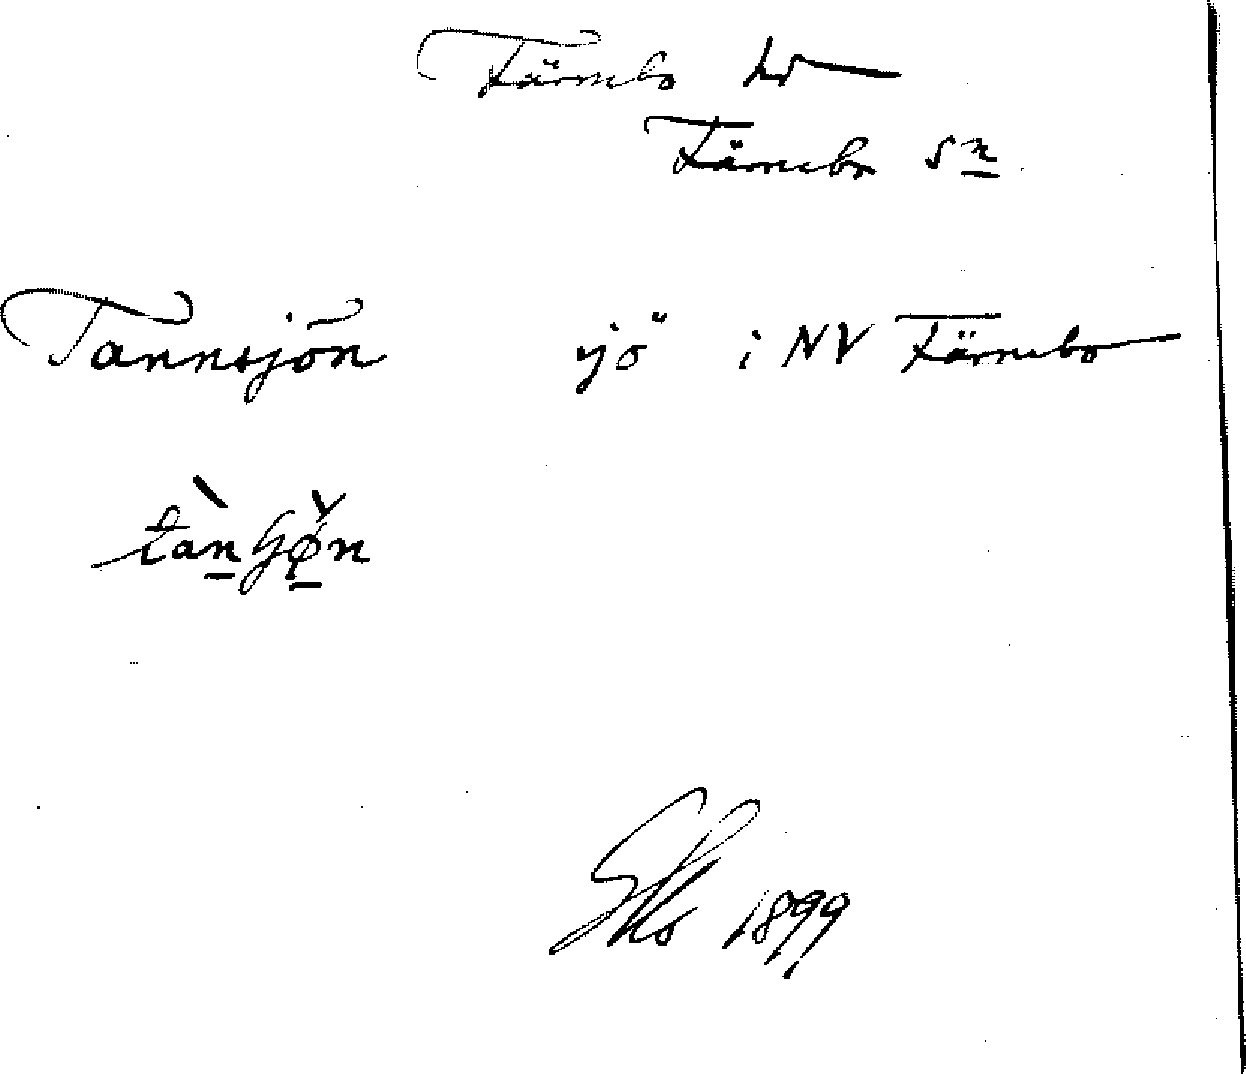 Färnebo hd
Färnebo sn
Tannsjön sjö i NV Färnebo
1899